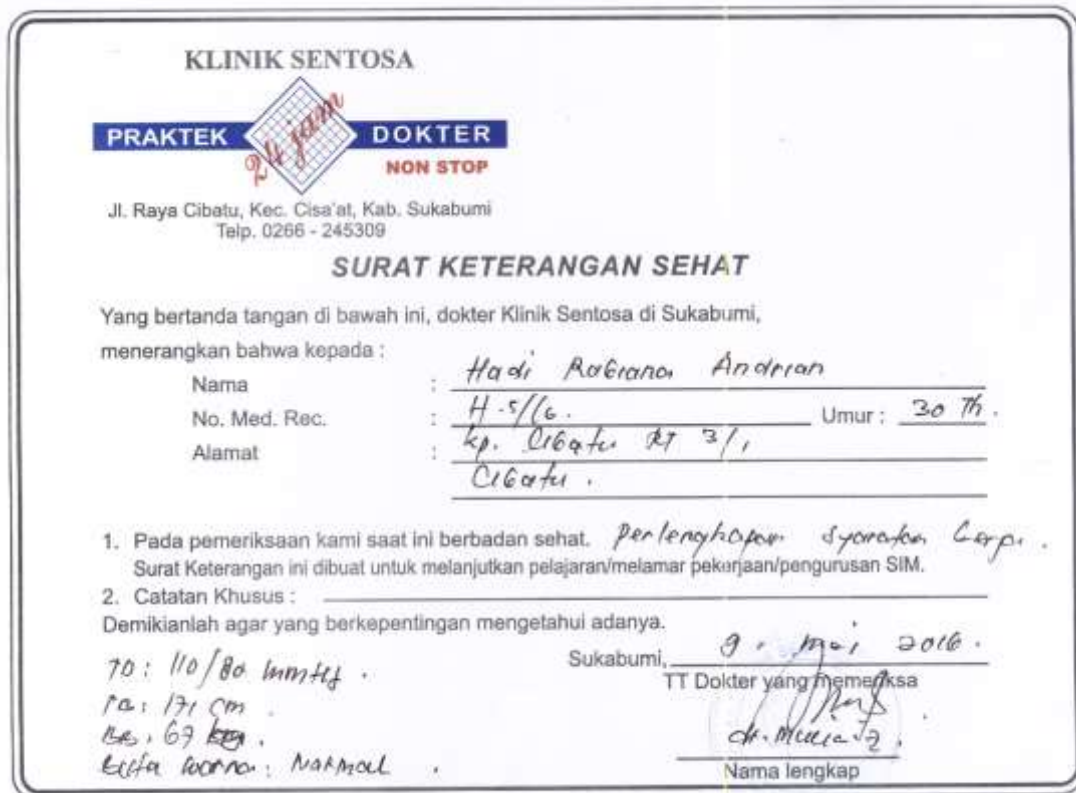 KLINIK SENTOSA
PRAKTEK 24 jam DOKTER
NON STOP
Jl. Raya Cibatu, Kec. Cisa'at, Kab. Sukabumi
Telp. 0266 - 245309
SURAT KETERANGAN SEHAT
Yang bertanda tangan di bawah ini, dokter Klinik Sentosa di Sukabumi,
menerangkan bahwa kepada :
Nama : Hadi Andrian
No. Med. Rec. : Umur : 30 Th.
Alamat : kp. Cibatu RT 3/1
Cibatu .
1. Pada pemeriksaan kami saat ini berbadan sehat. Perlengkapan
Surat Keterangan ini dibuat untuk melanjutkan pelajaran/melamar pekerjaan/pengurusan SIM.
2. Catatan Khusus :
Demikianlah agar yang berkepentingan mengetahui adanya.
Sukabumi, 9. mei 2016.
TT Dokter yang memeriksa
TD: 110/80 mmHg .
171 cm
BB. 67 kg.
Buta warna: Normal .
Nama lengkap